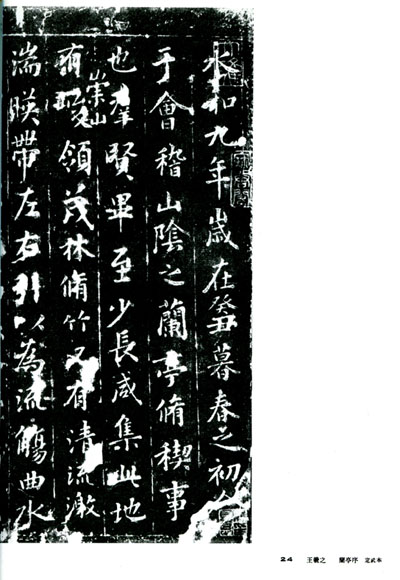 永和九年歲在癸丑暮春之初會
于會稽山陰之蘭亭脩稧事
也羣賢畢至少長咸集此地
有崇山峻領茂林脩竹又有清流激
湍暎帶左右引以為流觴曲水
24 王羲之 蘭亭序 定武本